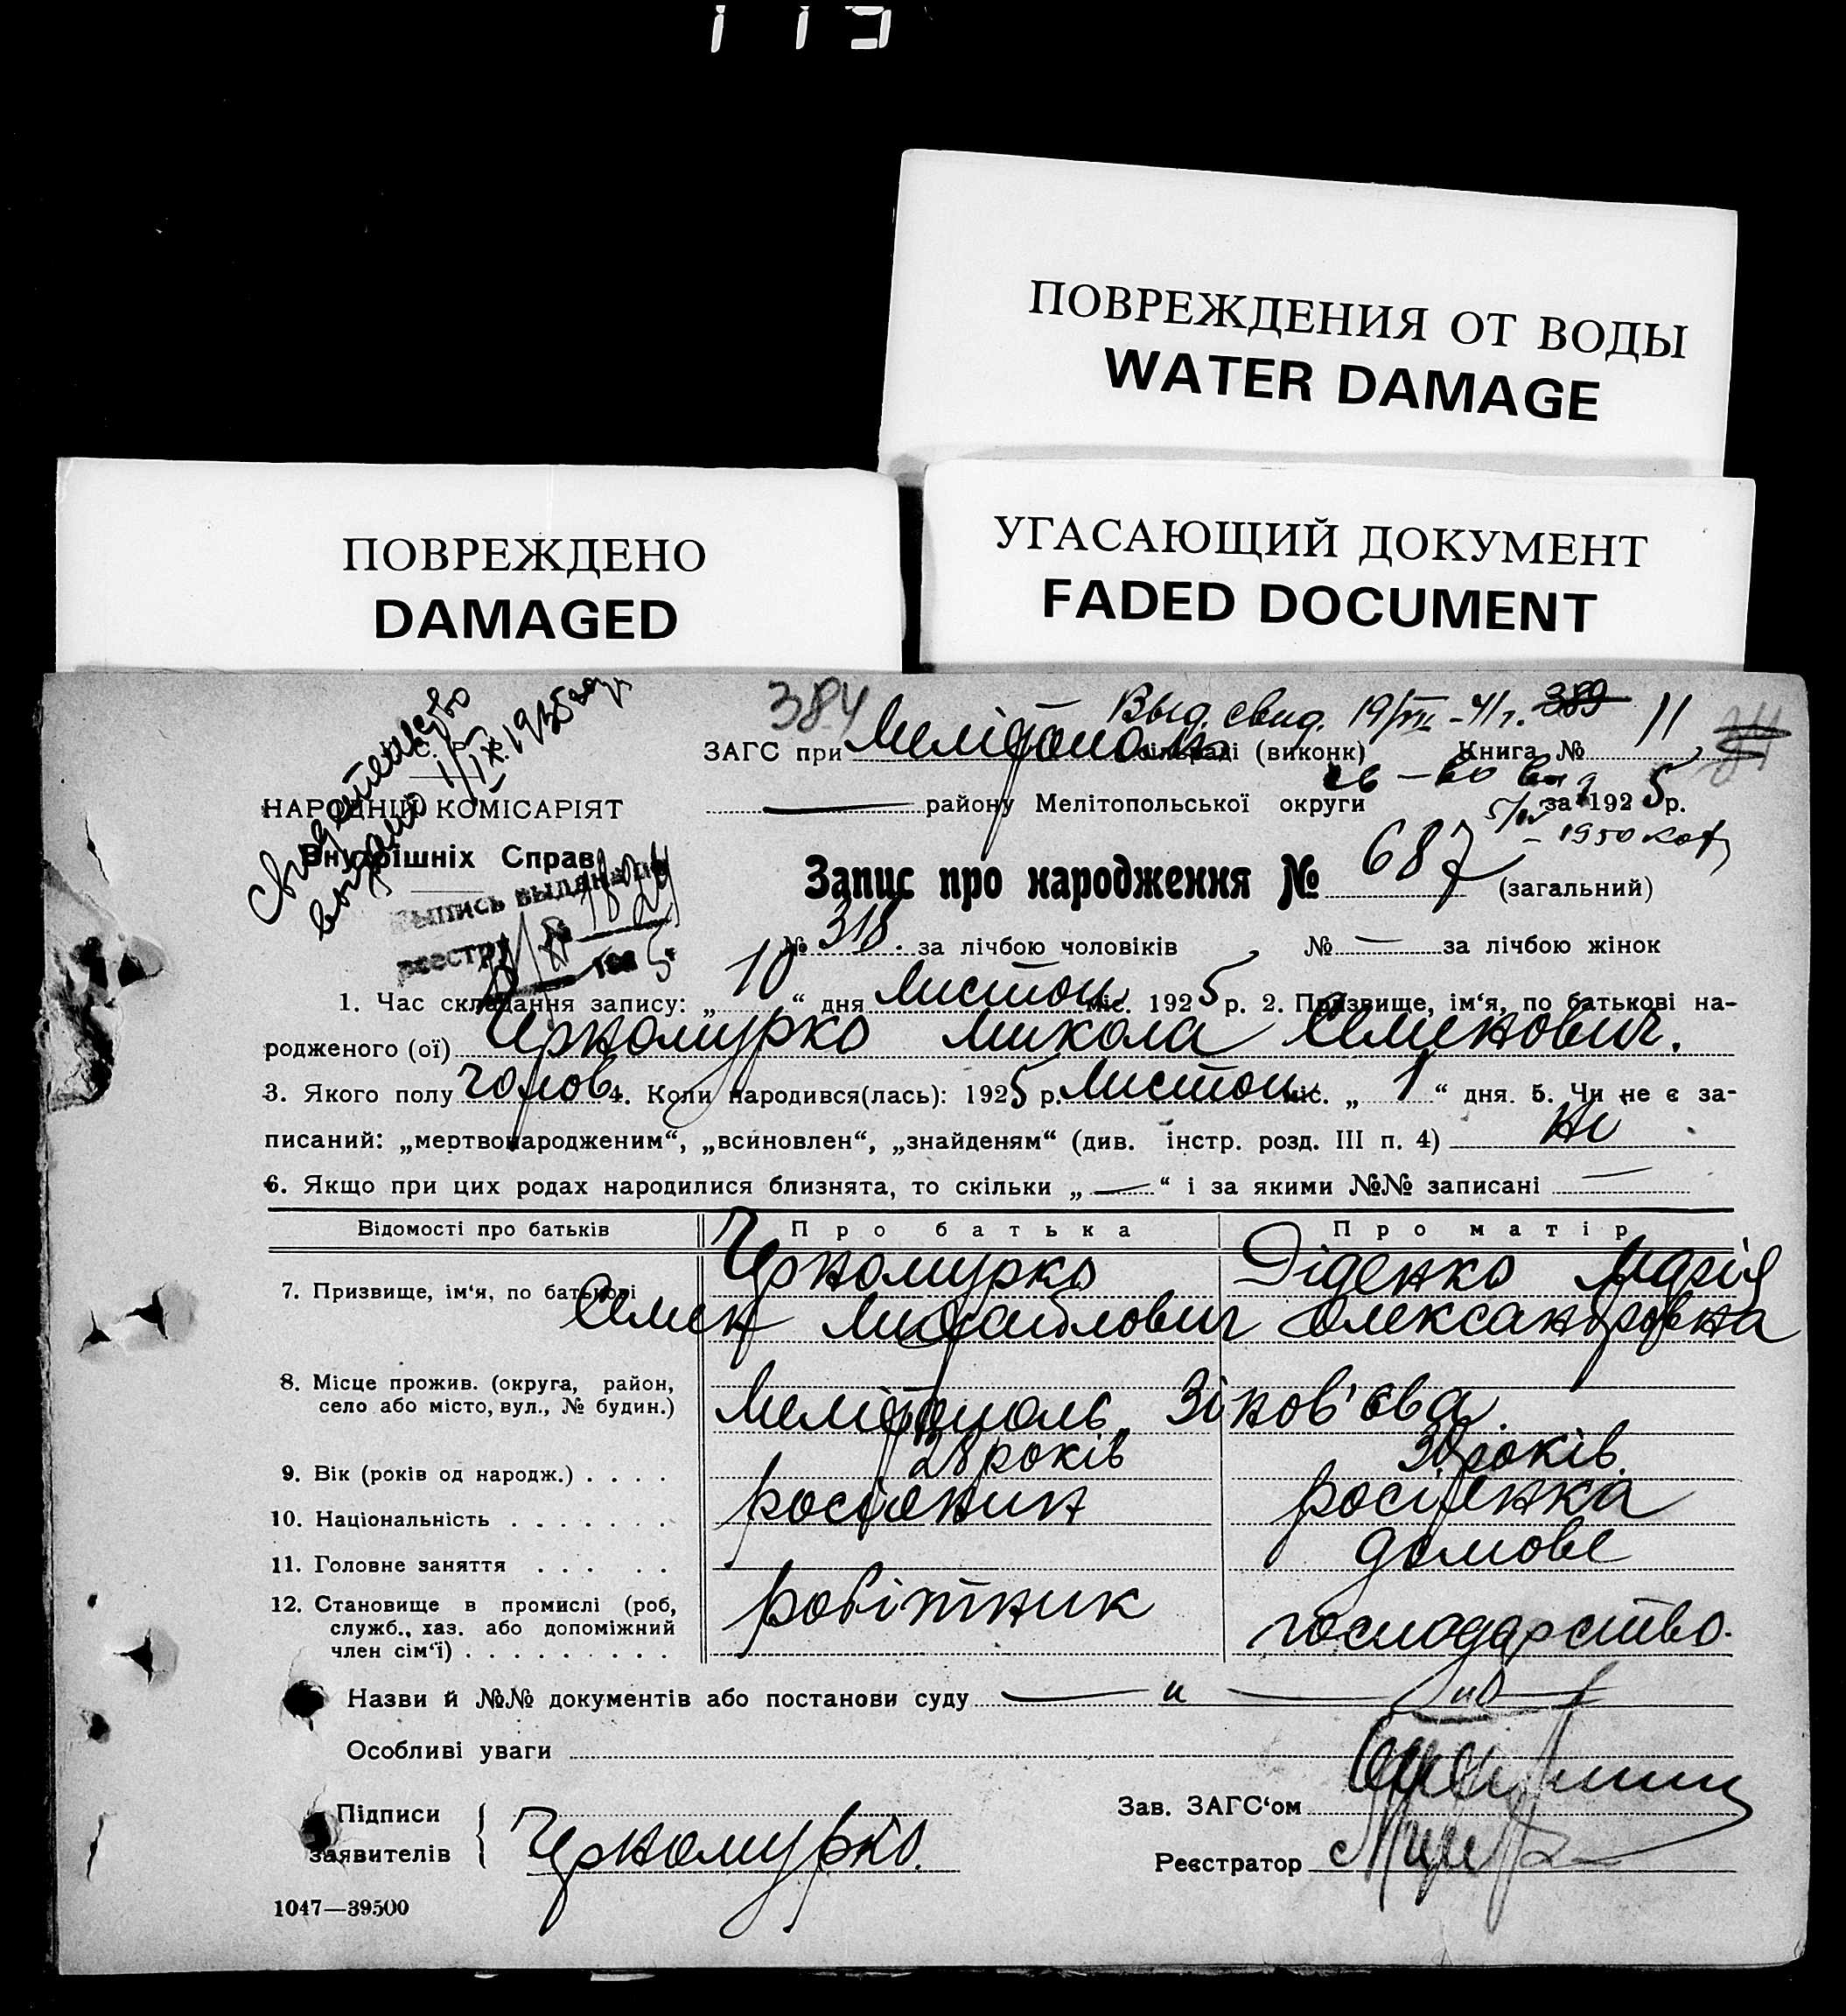 113
ПОВРЕЖДЕНИЯ ОТ ВОДЫ
WATER DAMAGE
ПОВРЕЖДЕНО
DAMAGED
УГАСАЮЩИЙ ДОКУМЕНТ
FADED DOCUMENT
384 Выд. свид. 19/VII-41г. 389 11
Свидетельство выдано 1/IX 1935
У.С.Р.Р.
ЗАГС при Мелітополь сільраді (виконк) Книга №
НАРОДНІЙ КОМІСАРІЯТ
— району Мелітопольської округи за 1925 р.
св-во выд
5/IV – 1950
Внутрішніх Справ
Запис про народження № 687 (загальний)
Выпись выдана по
реестру № 1824
№ 318. за лічбою чоловіків № — за лічбою жінок
1. Час складання запису: „10“ дня Листоп. міс. 1925 р. 2. Призвище, ім‘я, по батькові на-
родженого (ої) Чорномурко Микола Семенович.
3. Якого полу чолов. 4. Коли народився(лась): 1925 р. Листоп. міс. „1“ дня. 5. Чи не є за-
писаний: „мертвонародженим“, „всиновлен“, „знайденям“ (див. інстр. розд. III п. 4) Ні
6. Якщо при цих родах народилися близнята, то скільки „—“ і за якими №№ записані —
Відомості про батьків Про батька Про матір
7. Призвище, ім‘я, по батькові Чорномурко Діденко Марія
Семен Михайлович Олександровна
8. Місце прожив. (округа, район,
село або місто, вул., № будин.) Мелітополь, Зінов'єва.
9. Вік (років од народж.) . . . . 28 років 30 років.
10. Національність . . . . . . . росіянин росіянка
11. Головне заняття . . . . . домове
12. Становище в промислі (роб, робітник господарство.
служб., хаз. або допоміжний
член сім‘ї) . . . . . . . . .
Назви й №№ документів або постанови суду — „ —
Особливі уваги
Підписи
заявителів
Чорномурко.
Зав. ЗАГС‘ом
Реєстратор
1047—39500